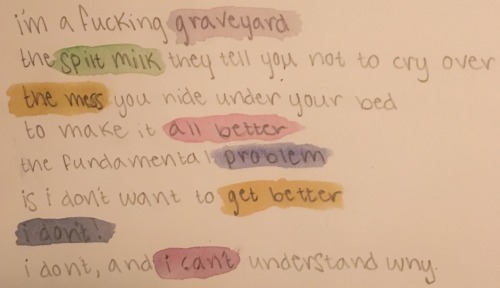 i'm a fucking graveyard
the spilt milk they tell you not to cry over
the mess you hide under your bed
to make it all better
the fundamental problem
is i don't want to get better
i don't!
i dont, and i can't understand why.